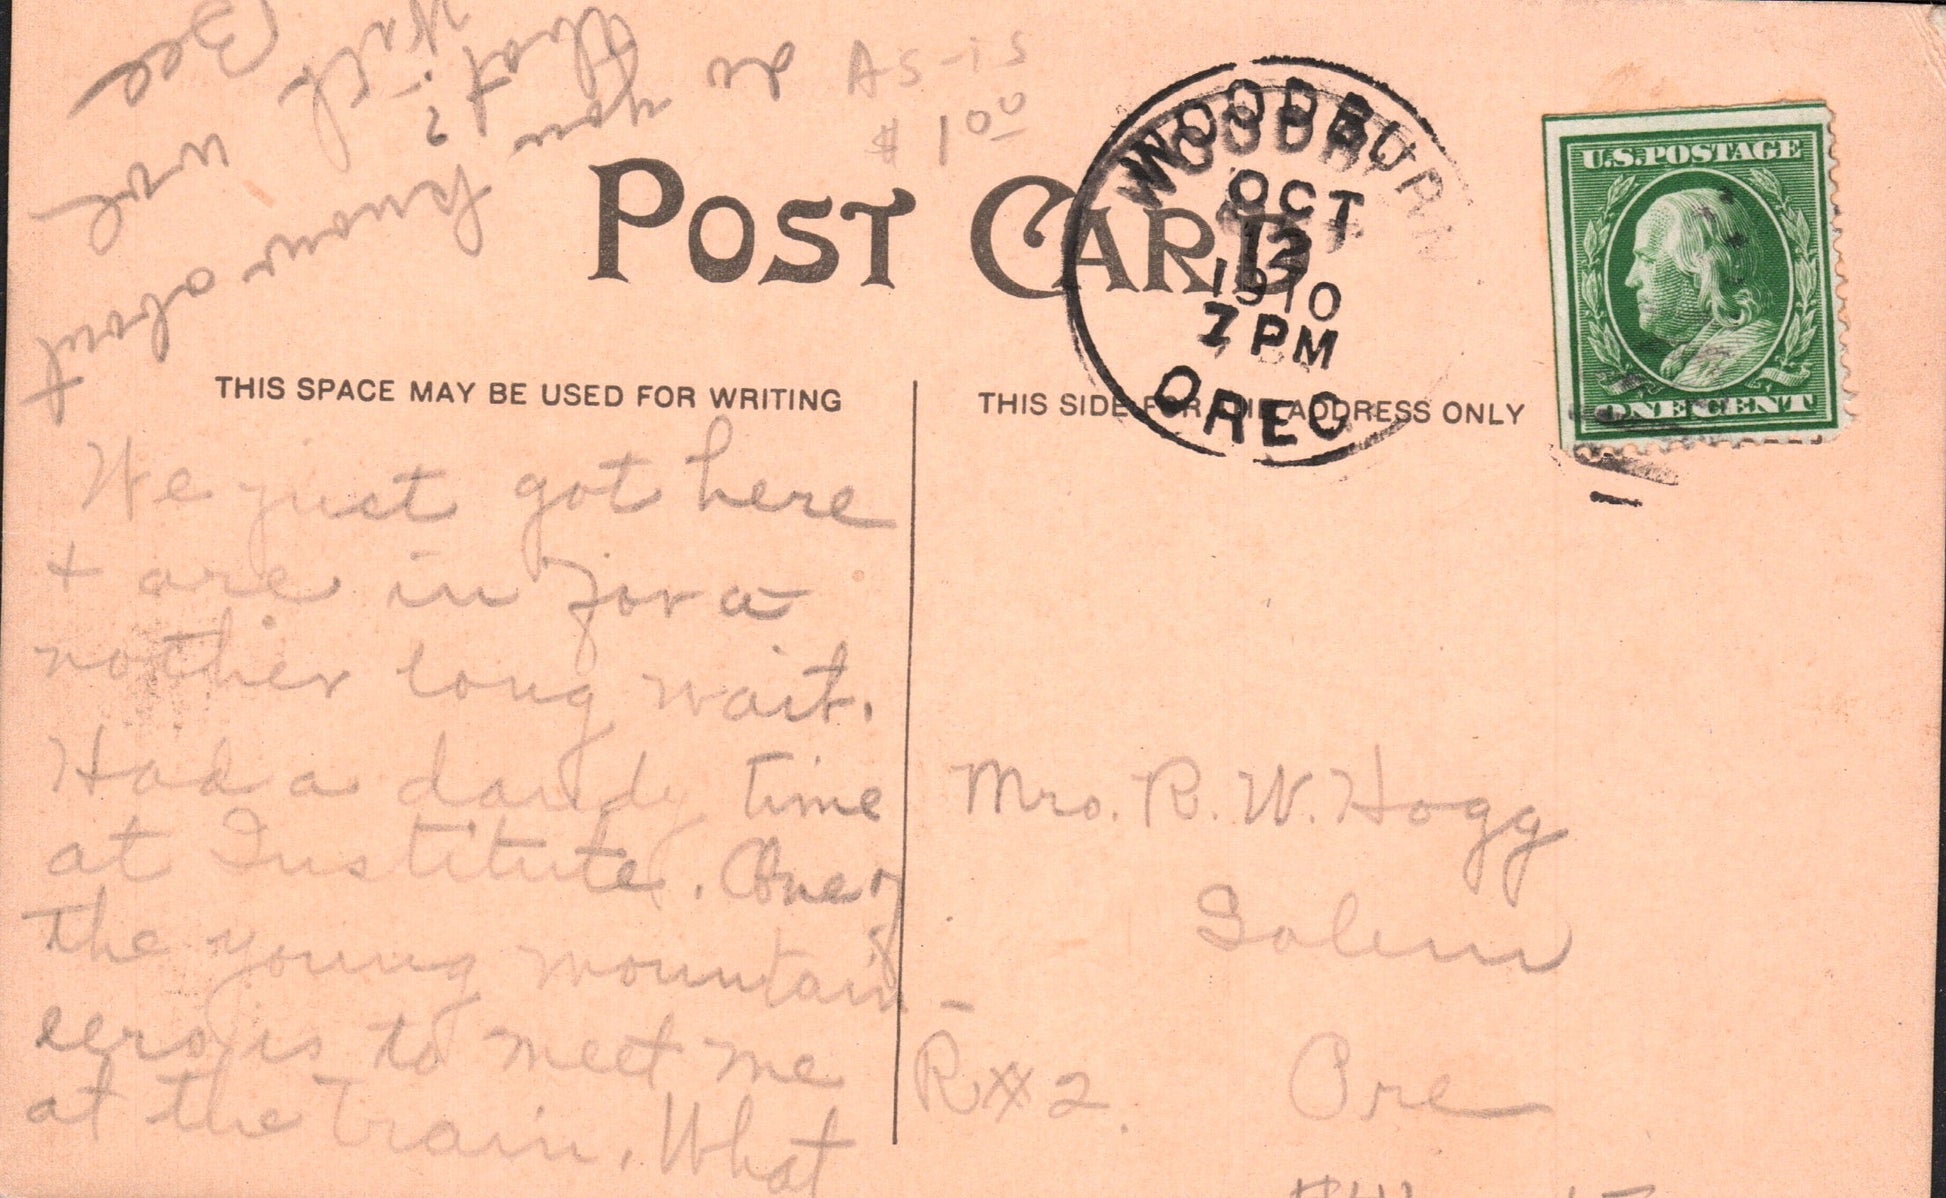 As-is
$1.00
POST CARD
WOODBURN
OCT
12
1910
7 PM
OREG
U.S. POSTAGE
ONE CENT
THIS SPACE MAY BE USED FOR WRITING
THIS SIDE FOR THE ADDRESS ONLY
We just got here
+ are in for a
nother long wait.
Had a dandy time
at Institute. One of
the young mountain-
eers is to meet me
at the train. What
do you
know about
that?
Bee
Mrs. R. W. Hogg
Salem
R#2. Ore